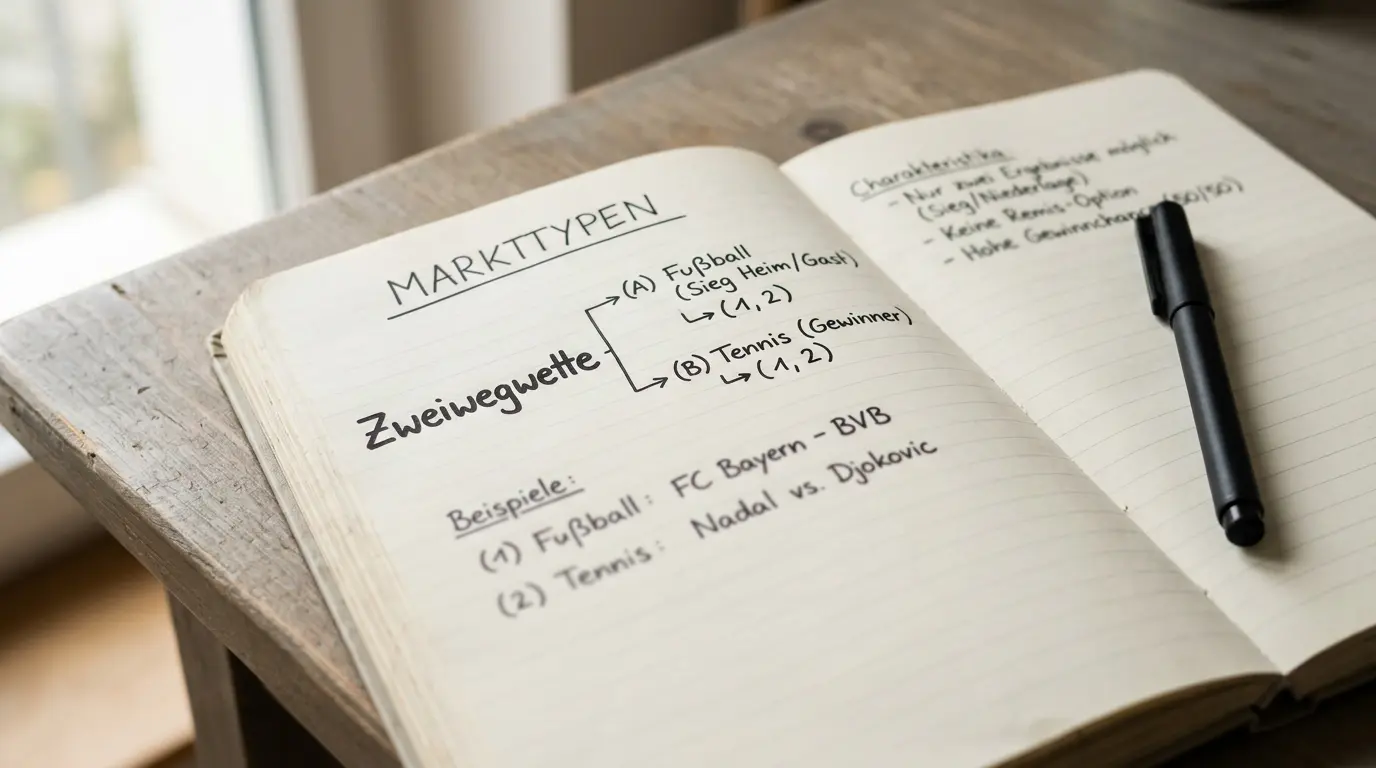 MARKTTYPEN
Zweiwegwette
(A) Fußball
(Sieg Heim/Gast)
↳ (1, 2)
(B) Tennis (Gewinner)
↳ (1, 2)
Beispiele:
(1) Fußball: FC Bayern - BVB
(2) Tennis: Nadal vs. Djokovic
Charakteristika
- Nur zwei Ergebnisse möglich
(Sieg/Niederlage)
- Keine Remis-Option
- Hohe Gewinnchanc 50/50)